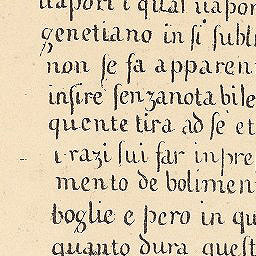 uapori i quai uapor
genetiano in si subli
non se fa apparen
insire senzanota bile
quente tira ad se et
i razi sui far inpre
mento de bolimen
boglie e pero in qu
quanto dura quest